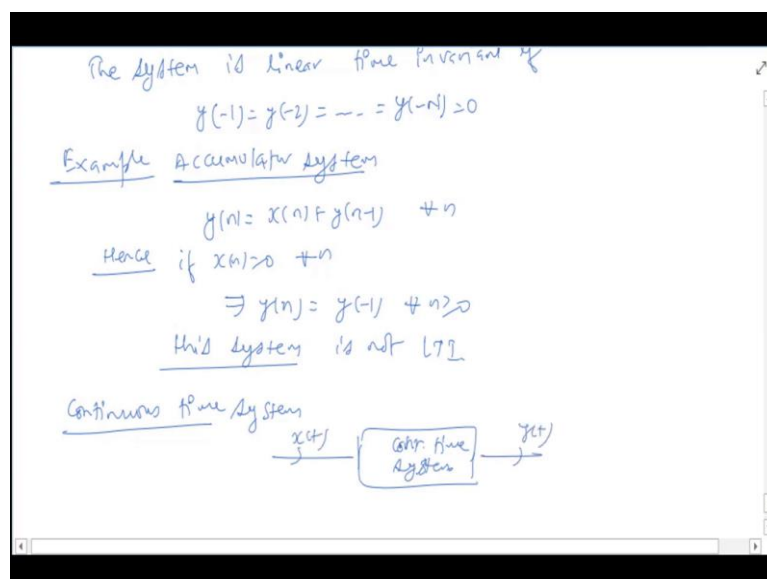 The system is linear time invariant if
y(-1) = y(-2) = --- = y(-N) = 0
Example Accumulator system
y(n) = x(n) + y(n-1) ∀ n
Hence if x(n) = 0 ∀ n
⇒ y(n) = y(-1) ∀ n ≥ 0
this system is not LTI
Continuous time system
x(t) y(t)
Cont. time
System